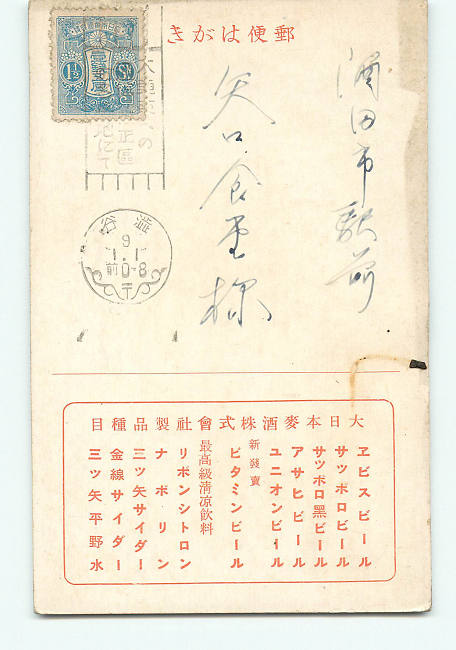 郵便はがき
蒲田市駅前
矢口食堂様
1½ Sn
澁谷
9
1.1
前0-8
〒
大日本麥酒株式會社製品種目
ヱビスビール
サッポロビール
サッポロ黑ビール
アサヒビール
ユニオンビール
新發賣
ビタミンビール
最高級清涼飲料
リボンシトロン
ナポリン
三ツ矢サイダー
金線サイダー
三ツ矢平野水